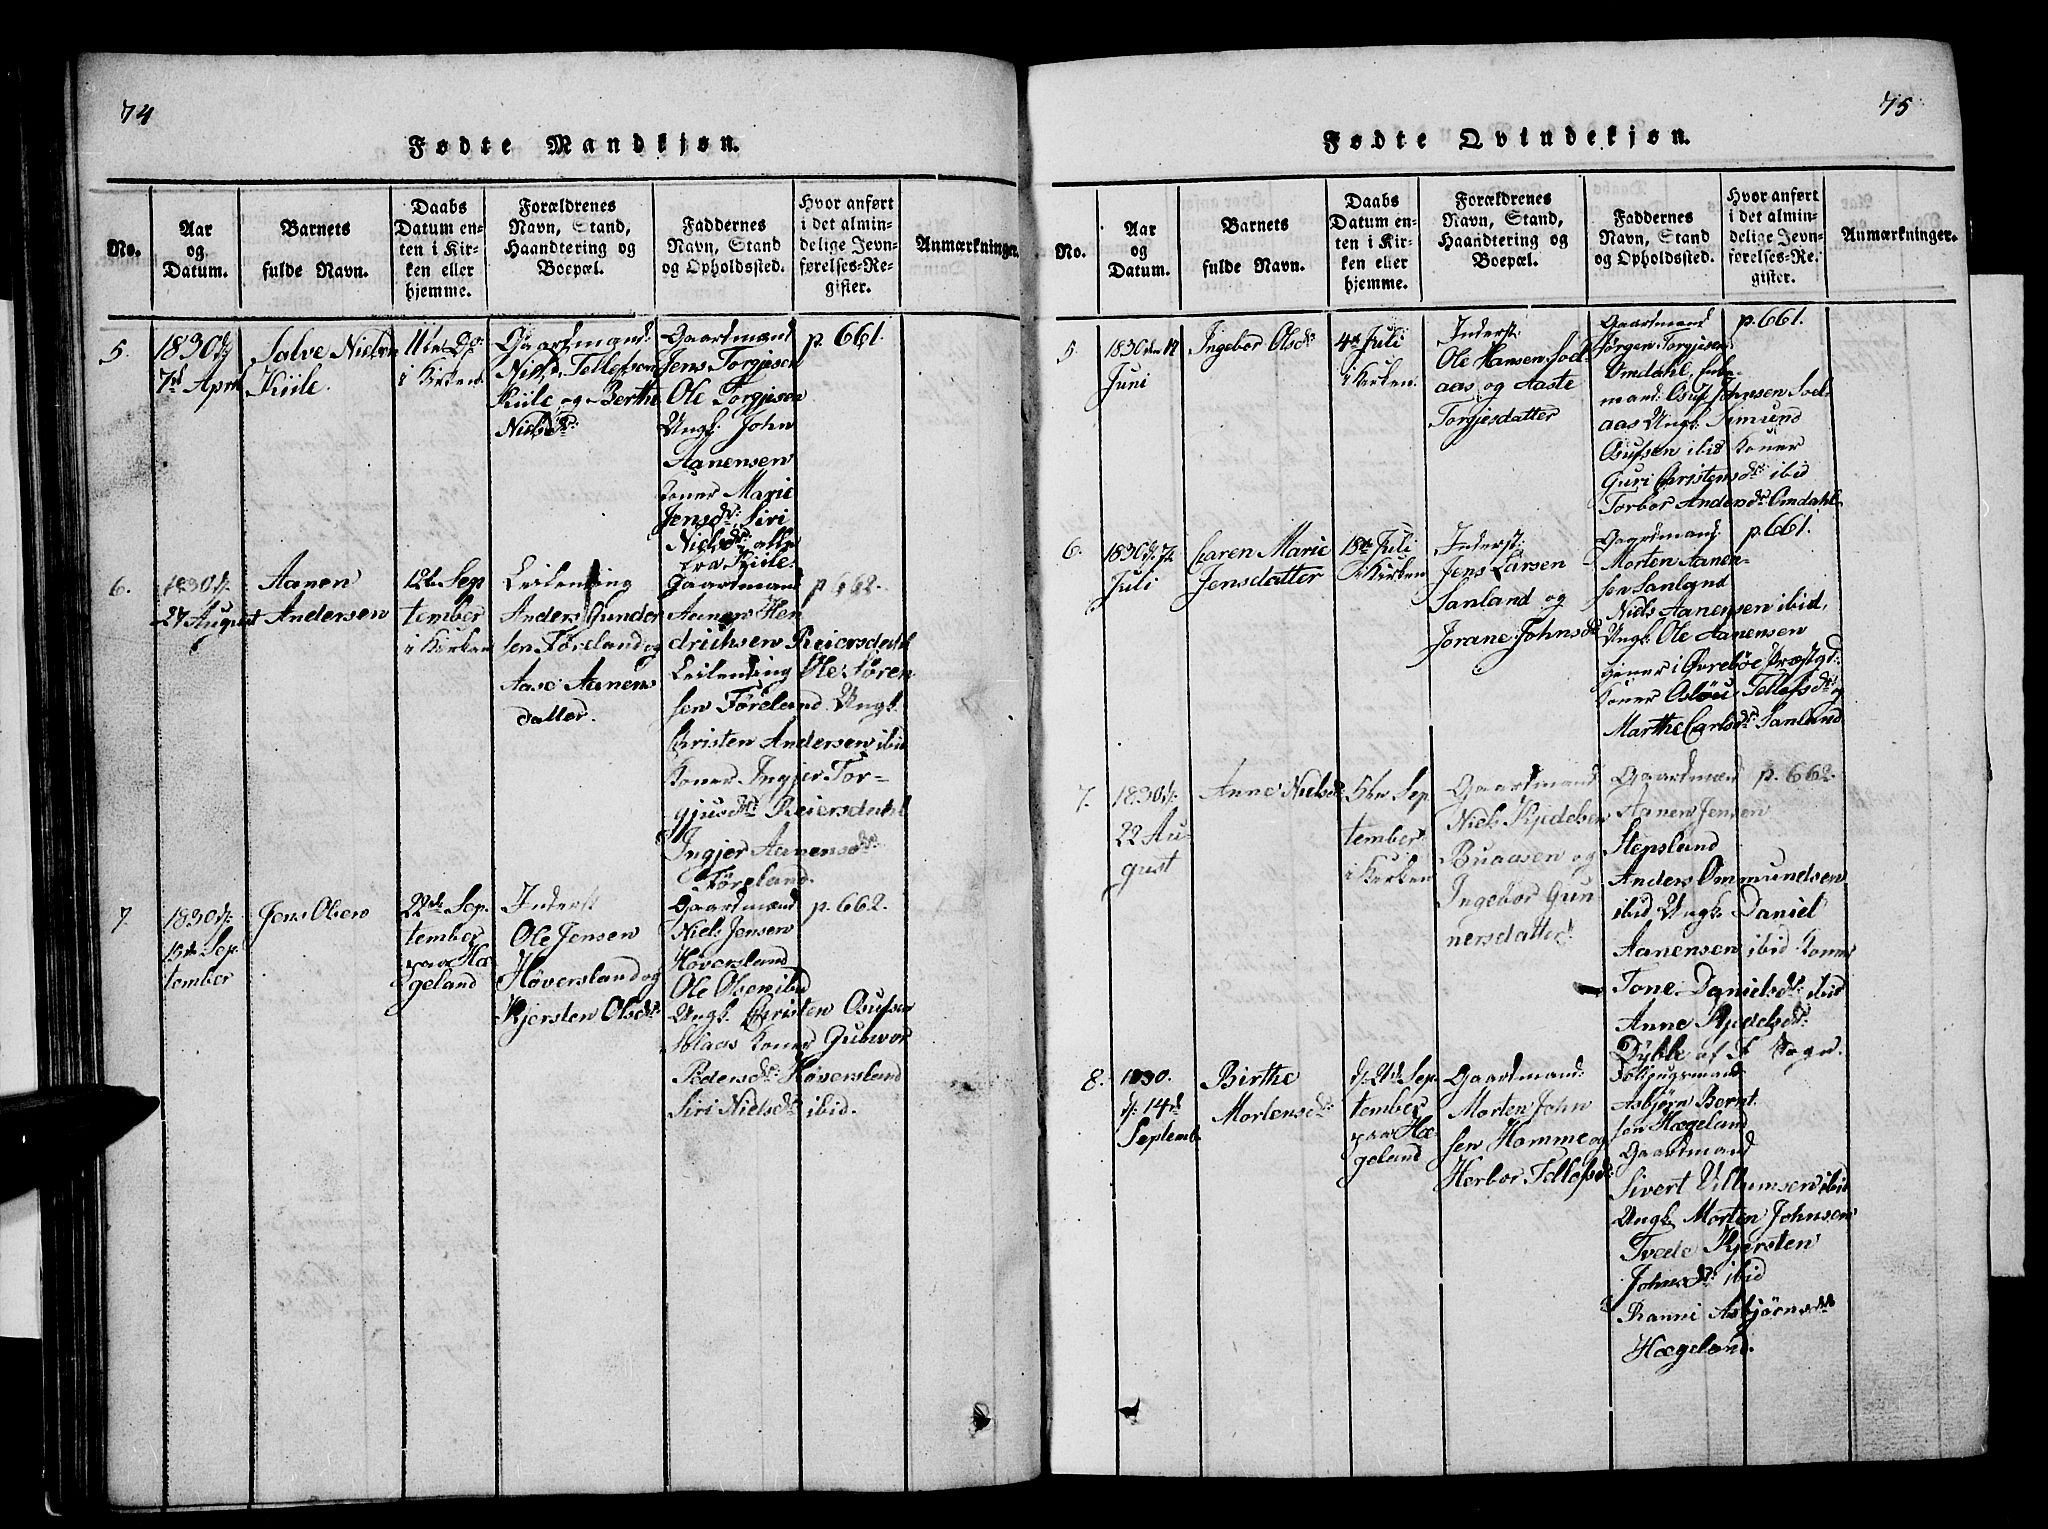 74
Fødte Mandkjøn.
No.
Aar
og
Datum.
Barnets
fulde Navn.
Daabs
Datum en-
ten i Kir-
ken eller
hjemme.
Forældrenes
Navn, Stand,
Haandtering og
Boepæl.
Faddernes
Navn, Stand
og Opholdssted.
Hvor anført
i det almin-
delige Jevn-
førelses-Re-
gister.
Anmærkninger.
5.
1830 d
7d April
Salve Nielsen
Kiile
11te
i Kirken
Gaardmand
Niels Tellefsen
Kiile og Berthe
Nielsdr:
Gaardmænd
Jens Torgjesen
Ole Torgjesen
Ungk: John
Aanensen
Koner Marie
Jensdr: Siri
Nielsdr: alle
fra Kiile.
p. 661.
6.
1830 d:
27 August
Aanen
Andersen
12te Sep
tember
i Kirken
Leilending
Anders Gunder
sen Føreland og
Aase Aanens
datter.
Gaardmand
Aanen Hen
drichsen Reiersdahl
Leilending Ole Søren
sen Føreland. Ungk.
Christen Andersen ibid
Koner Ingjer Tor-
gjusdr: Reiersdahl
Ingjer Aanensdr:
Føreland.
p. 662.
7.
1830 d:
13de Sep
tember
Jens Olsen
22de Sep.
tember
paa Hæ
geland
Inderst
Ole Jensen
Høversland og
Kjersten Olsdr:
Gaardmænd
Niels Jensen
Høversland
Ole Olsen ibid
Ungk: Christen Osufsen
Ablaas Koner Gunvor
Pedersdr: Høversland
Siri Nielsdr: ibid.
p. 662.
75
Fødte Qvindekjøn.
No.
Aar
og
Datum.
Barnets
fulde Navn.
Daabs
Datum en-
ten i Kir-
ken eller
hjemme.
Forældrenes
Navn, Stand,
Haandtering og
Boepæl.
Faddernes
Navn, Stand
og Opholdssted.
Hvor anført
i det almin-
delige Jevn-
førelses-Re-
gister.
Anmærkninger.
5.
1830 den 12
Juni
Ingebor Olsdr:
4de Juli
i Kirken
Inderst:
Ole Hansen Sol-
aas og Aaste
Torgjesdatter
Gaardmand
Jørgen Torgjesen
Omdahl,
mand: Osuf Johnsen Sol-
aas Ungk: Simund
Osufsen ibid Koner
Guri Christensdr: ibid
Torbor Andersdr: Omdahl
p. 661.
6.
1830 d: 7de
Juli
Caren Marie
Jensdatter
18de Juli
i Kirken
Inderst:
Jens Larsen
Sanland og
Jorane Johnsdr
Gaardmand:
Morten Aanen-
sen Sanland
Niels Aanensen ibid,
Ungk: Ole Aanensen
tjener i Øvrebøe Præstgd:
Koner Osløu Tellefsdr: og
Marthe Carlsdr: Sanland
p. 661.
7.
1830 d:
22 Au-
gust
Anne Nielsdr:
5te Sep
tember
i Kirken
Gaardmand
Niels Kjedelsen
Buaasen og
Ingebor Gun
nersdatter
Gaardmænd
Aanen Jensen
Stepsland
Anders Ommundsen
ibid Ungk: Daniel
Aanensen ibid Koner
Tone Danielsdr: ibid
Anne Kjedelsdr:
Dyble af Sogn.
p. 662.
8.
1830.
d: 14d
Septemb.
Birthe
Mortensdr:
Sep-
tember
paa Hæ-
geland
Gaardmand:
Morten John
sen Homme og
Herbor Tellefsdr:
Asbjørn Bernt
sen Hægeland
Gaardmand
Sivert Villumsen ibid
Ungk: Morten Johnsen
Tvede Kjersten
Johnsdr: ibid
Ranni Asbjørnsdr:
Hægeland.